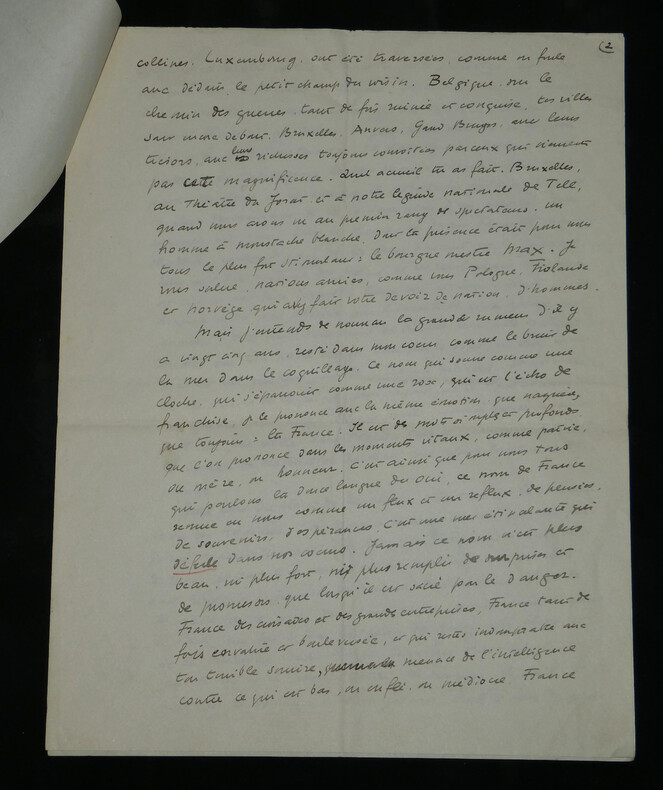 2
collines. Luxembourg, ont été traversées, comme on foule
avec dédain le petit champ du voisin. Belgique, sur le
chemin des guerres, tant de fois ruinée et conquise, tes villes
sont encore debout, Bruxelles, Anvers, Gand Bruges, avec leurs
trésors, avec leurs richesses toujours convoitées par ceux qui n'aiment
pas cette magnificence. Quel accueil tu as fait, Bruxelles,
au Théâtre du Jorat et à notre légende nationale de Tell,
quand nous avons vu au premier rang de spectateurs, un
homme à moustache blanche, dont la présence était pour nous
tous le plus fort stimulant : le bourgmestre Max. Je
vous salue, nations amies, comme vous Pologne, Finlande
et Norvège qui avez fait votre devoir de nation, d'hommes.
Mais j'entends de nouveau la grande rumeur d'il y
a vingt cinq ans, resté dans mon coeur comme le bruit de
la mer dans le coquillage. Ce nom qui sonne comme une
cloche, qui s'épanouit comme une rose, qui est l'écho de
franchise, je le prononce avec la même émotion que naguère,
que toujours : la France. Il est des mots simples et profonds
que l'on prononce dans les moments vitaux, comme patrie,
ou mère, ou honneur. C'est ainsi que pour nous tous
qui parlons la douce langue du oui, ce nom de France
remue en nous comme un flux et un reflux, de pensées,
de souvenirs, d'espérances. C'est une mer étincelante qui
déferle dans nos coeurs. Jamais ce nom n'est plus
beau, ni plus fort, ni plus rempli de surprises et
de promesses que lorsqu'il est sacré par le danger.
France des croisades et des grandes entreprises, France tant de
fois envahie et bouleversée, et qui restes indomptable avec
ton terrible sourire, menace de l'intelligence
contre ce qui est bas, ou enflé, ou médiocre France